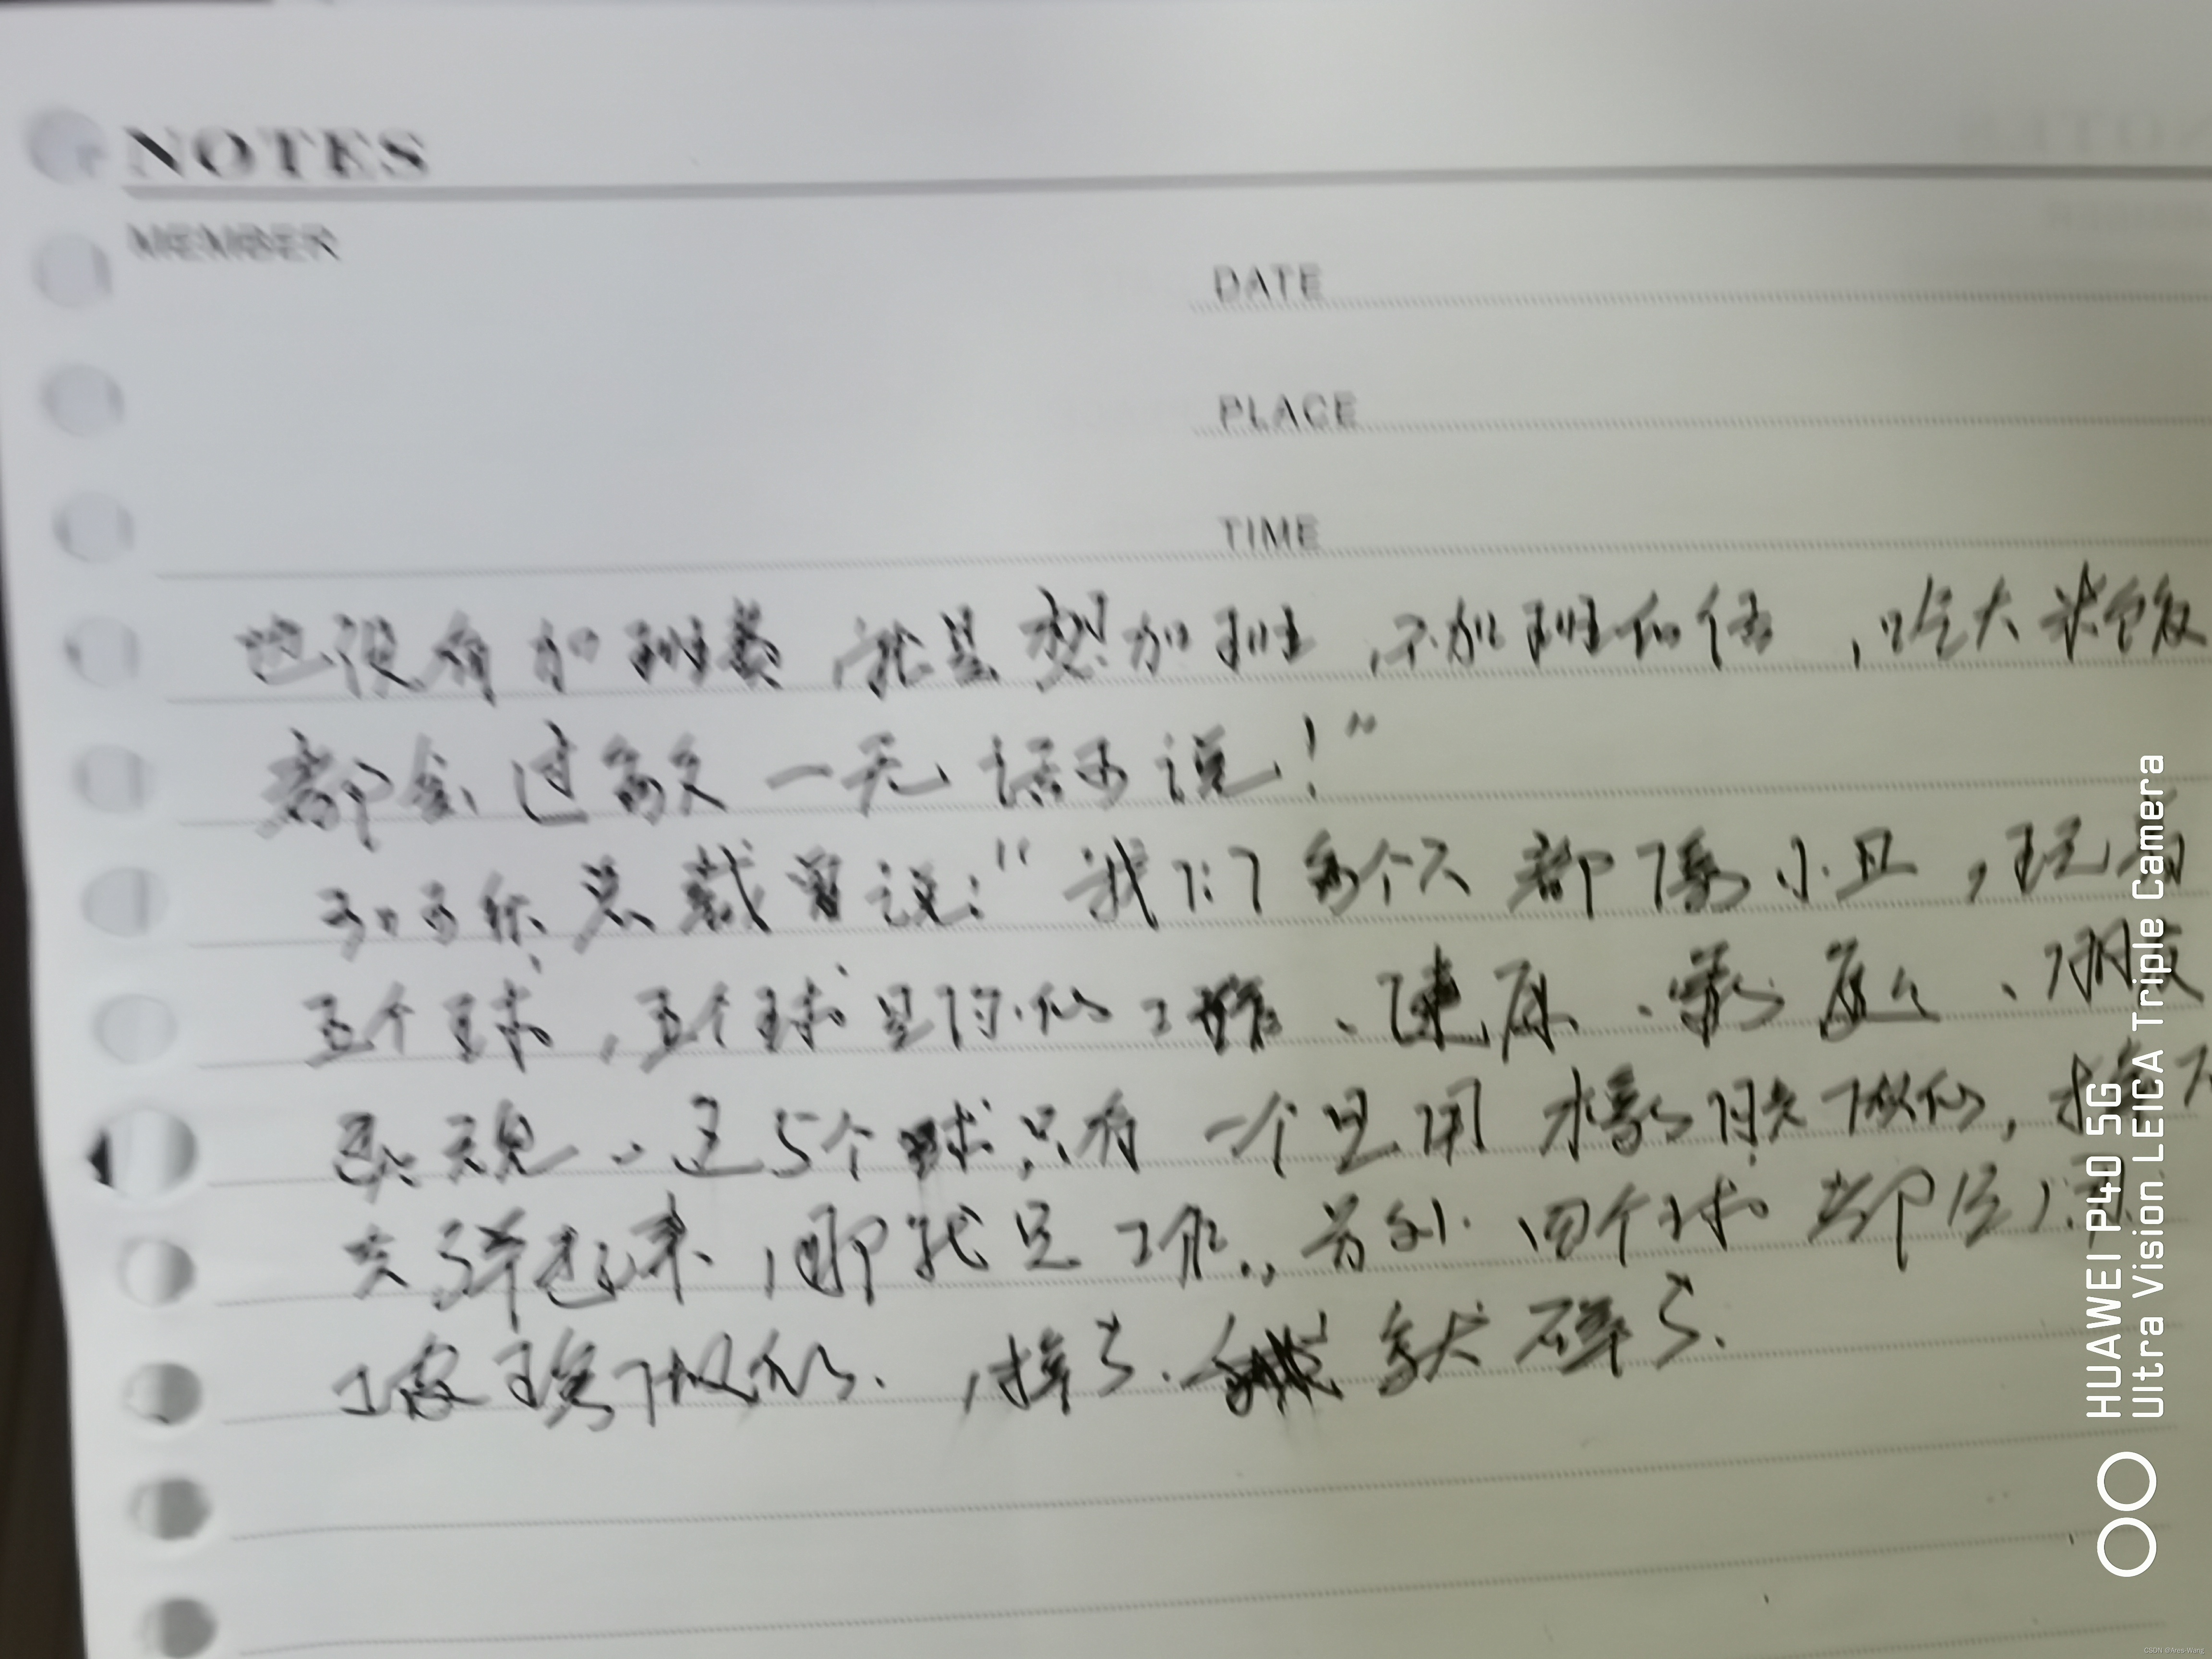 NOTES
MEMBER
DATE
PLACE
TIME
也没有加班费,就是想加班,不加班的话,吃大米饭
都会过敏 一天 话 说!”
总裁曾说:“我们每个人都像小丑,玩着
五个球,五个球是你的工作、健康、家庭、朋友
灵魂,这5个球只有一个是用橡胶做的,掉下
去弹起来,那就是工作,另外四个球都是用
玻璃做的,掉了 就碎了.
HUAWEI P40 5G
Ultra Vision LEICA Triple Camera
CSDN @Ares-Wang